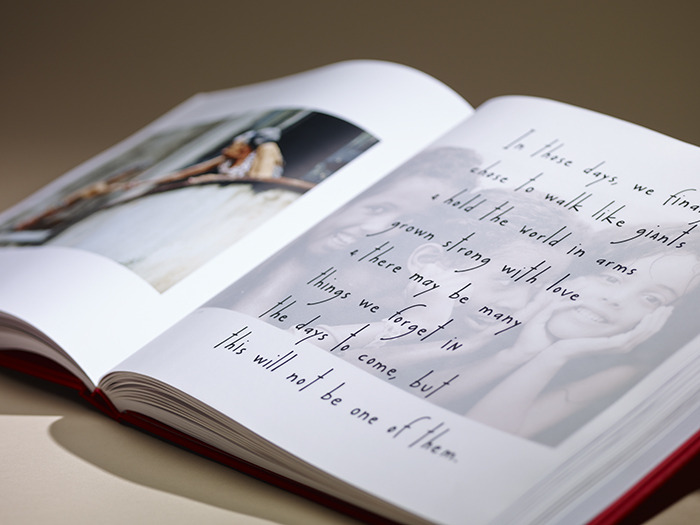 In those days, we
chose to walk like giants
& hold the world in arms
grown strong with love
& there may be many
things we forget in
the days to come, but
this will not be one of them.